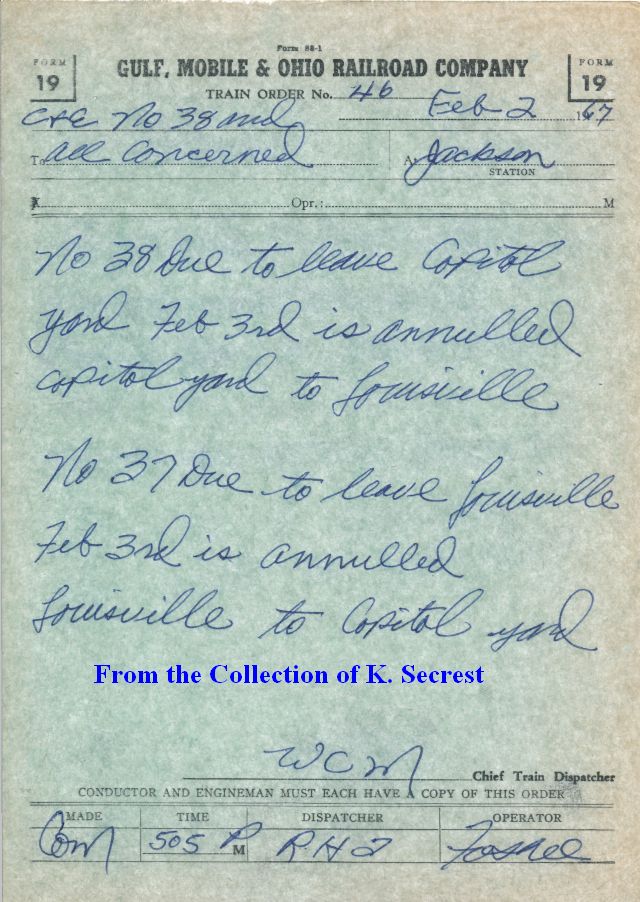 Form 88-1
FORM 19
GULF, MOBILE & OHIO RAILROAD COMPANY
FORM 19
TRAIN ORDER No. 46
Feb 2 1967
C&E No 38 and
To all Concerned
At Jackson
STATION
X Opr.: M
No 38 Due to leave Capitol
yard Feb 3rd is annulled
capitol yard to Louisville
No 37 Due to leave Louisville
Feb 3rd is annulled
Louisville to Capitol yard
From the Collection of K. Secrest
WCM Chief Train Dispatcher
CONDUCTOR AND ENGINEMAN MUST EACH HAVE A COPY OF THIS ORDER
MADE TIME DISPATCHER OPERATOR
Com 505 P M